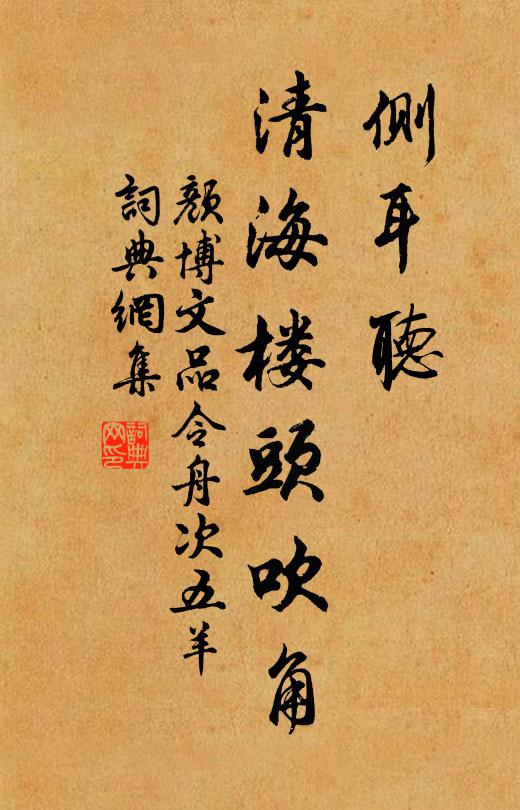 側耳聽
清海楼頭吹角
顏博文品令舟次五羊
詞典網集
詞典
网印